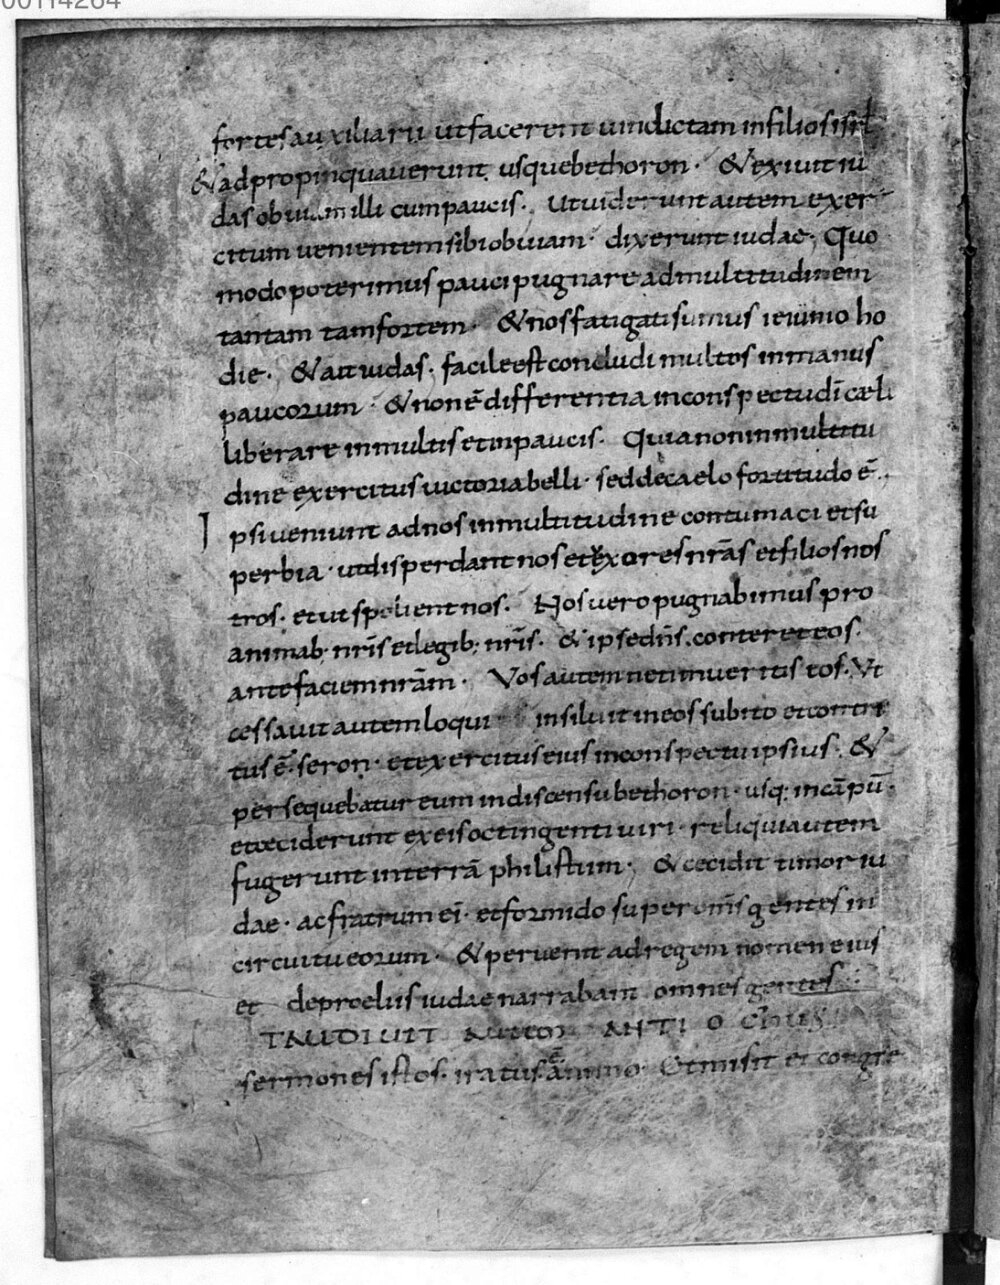 00114264
fortes auxiliarii ut facerent uindictam in filios isrl
& adpropinquauerunt usque bethoron · & exiuit iu
das obuiam illi cum paucis · ut uiderunt autem exer
citum uenientem sibi obuiam · dixerunt iudae · Quo
modo poterimus pauci pugnare ad multitudinem
tantam tam fortem · & nos fatigati sumus ieiunio ho
die · & ait iudas · facile est concludi multos in manus
paucorum · & non ē differentia in conspectu dī cæli
liberare in multis et in paucis · Quia non in multitu
dine exercitus uictoria belli · sed de caelo fortitudo ē ·
Ipsi ueniunt ad nos in multitudine contumaci et su
perbia · ut disperdant nos et uxores nrās et filios nos
tros · et ut spolient nos · Nos uero pugnabimus pro
animab· nrīs et legib; nrīs · & ipse dn̄s conteret eos
ante faciem nrām · Vos autem ne timueritis eos · Vt
cessauit autem loqui · insiluit in eos subito et contri
tus ē · seron · et exercitus eius in conspectu ipsius · &
persequebatur eum in discensu bethoron · usq; in cāpū ·
et ceciderunt ex eis octingenti uiri · reliqui autem
fugerunt in terrā philistiim · & cecidit timor iu
dae · ac fratrum eī · et formido super om̄s gentes in
circuitu eorum · & peruenit ad regem nomen eius
et de proeliis iudae narrabant omnes gentes :
TAUDIUIT AUTEM ANTIOCHUS
sermones istos · iratus ē animo · Et misit et congre